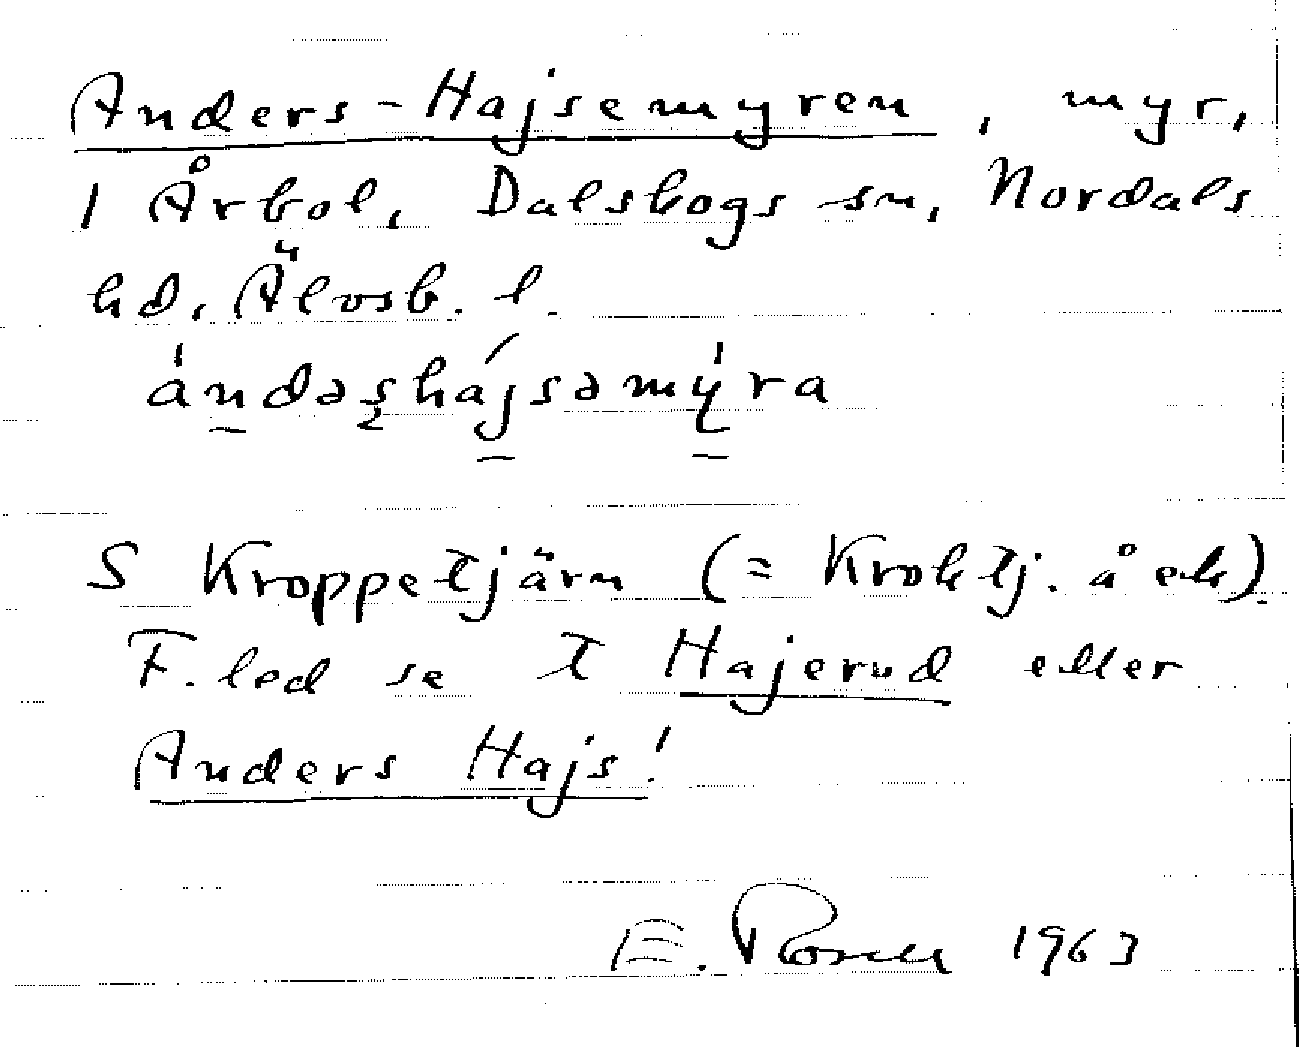 Anders-Hajsemyren, myr,
1 Årbol, Dalskogs sn, Nordals
hd, Älvsb. l.
ándəʂhájsəmýra
S Kroppetjärn (= Kroktj. å ek).
F. led se t Hajerud eller
Anders Hajs!
E. Rosell 1963